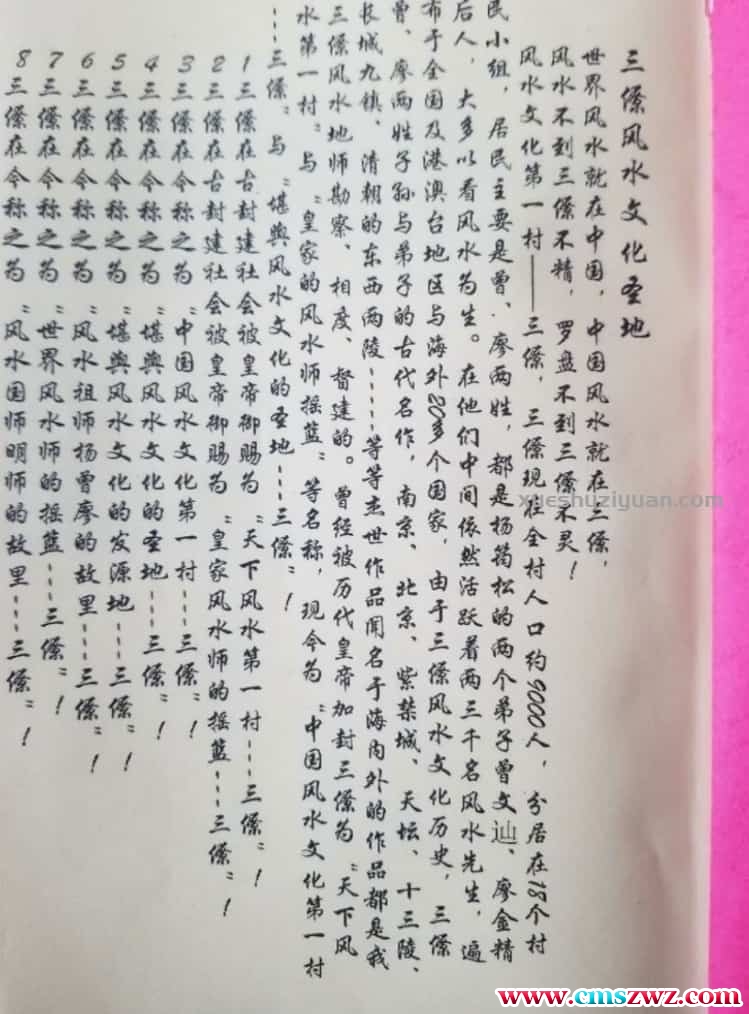 三僚风水文化圣地
世界风水就在中国，中国风水就在三僚，
风水不到三僚不精，罗盘不到三僚不灵！
风水文化第一村——三僚，三僚现在全村人口约9000人，分居在18个村
民小组，居民主要是曾、廖两姓，都是杨筠松的两个弟子曾文辿、廖金精
后人，大多以看风水为生。在他们中间依然活跃着两三千名风水先生，遍
布于全国及港澳台地区与海外20多个国家，由于三僚风水文化历史，三僚
曾、廖两姓子孙与弟子的古代名作，南京、北京、紫禁城、天坛、十三陵、
长城九镇、清朝的东西两陵……等等杰世作品闻名于海内外的作品都是我
三僚风水地师勘察、相度、督建的。曾经被历代皇帝加封三僚为“天下风
水第一村”与“皇家的风水师摇篮”等名称，现今为“中国风水文化第一村
……三僚”与“堪舆风水文化的圣地……三僚”！
1三僚在古封建社会被皇帝御赐为“天下风水第一村……三僚”！
2三僚在古封建社会被皇帝御赐为“皇家风水师的摇篮……三僚”！
3三僚在今称之为“中国风水文化第一村……三僚”！
4三僚在今称之为“堪舆风水文化的圣地……三僚”！
5三僚在今称之为“堪舆风水文化的发源地……三僚”！
6三僚在今称之为“风水祖师杨曾廖的故里……三僚”！
7三僚在今称之为“世界风水师的摇篮……三僚”！
8三僚在今称之为“风水国师明师的故里……三僚”！
xueshuziyuan.com
www.cmszwz.com